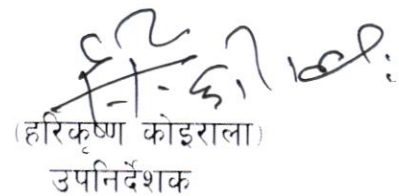 (हरिकृष्ण कोइराला)
उपनिर्देशक